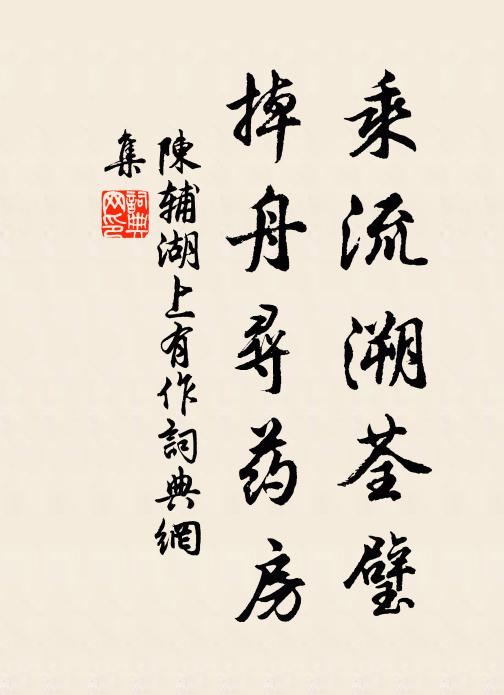 乘流溯荃壁
掉舟尋药房
陳辅湖上有作詞典網
集
詞典
网印